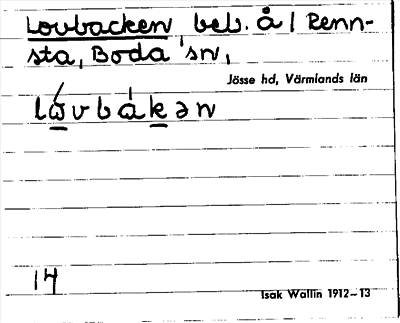 Lovbacken beb. å 1 Renn-
sta, Boda sn,
Jösse hd, Värmlands län
14
Isak Wallin 1912–13